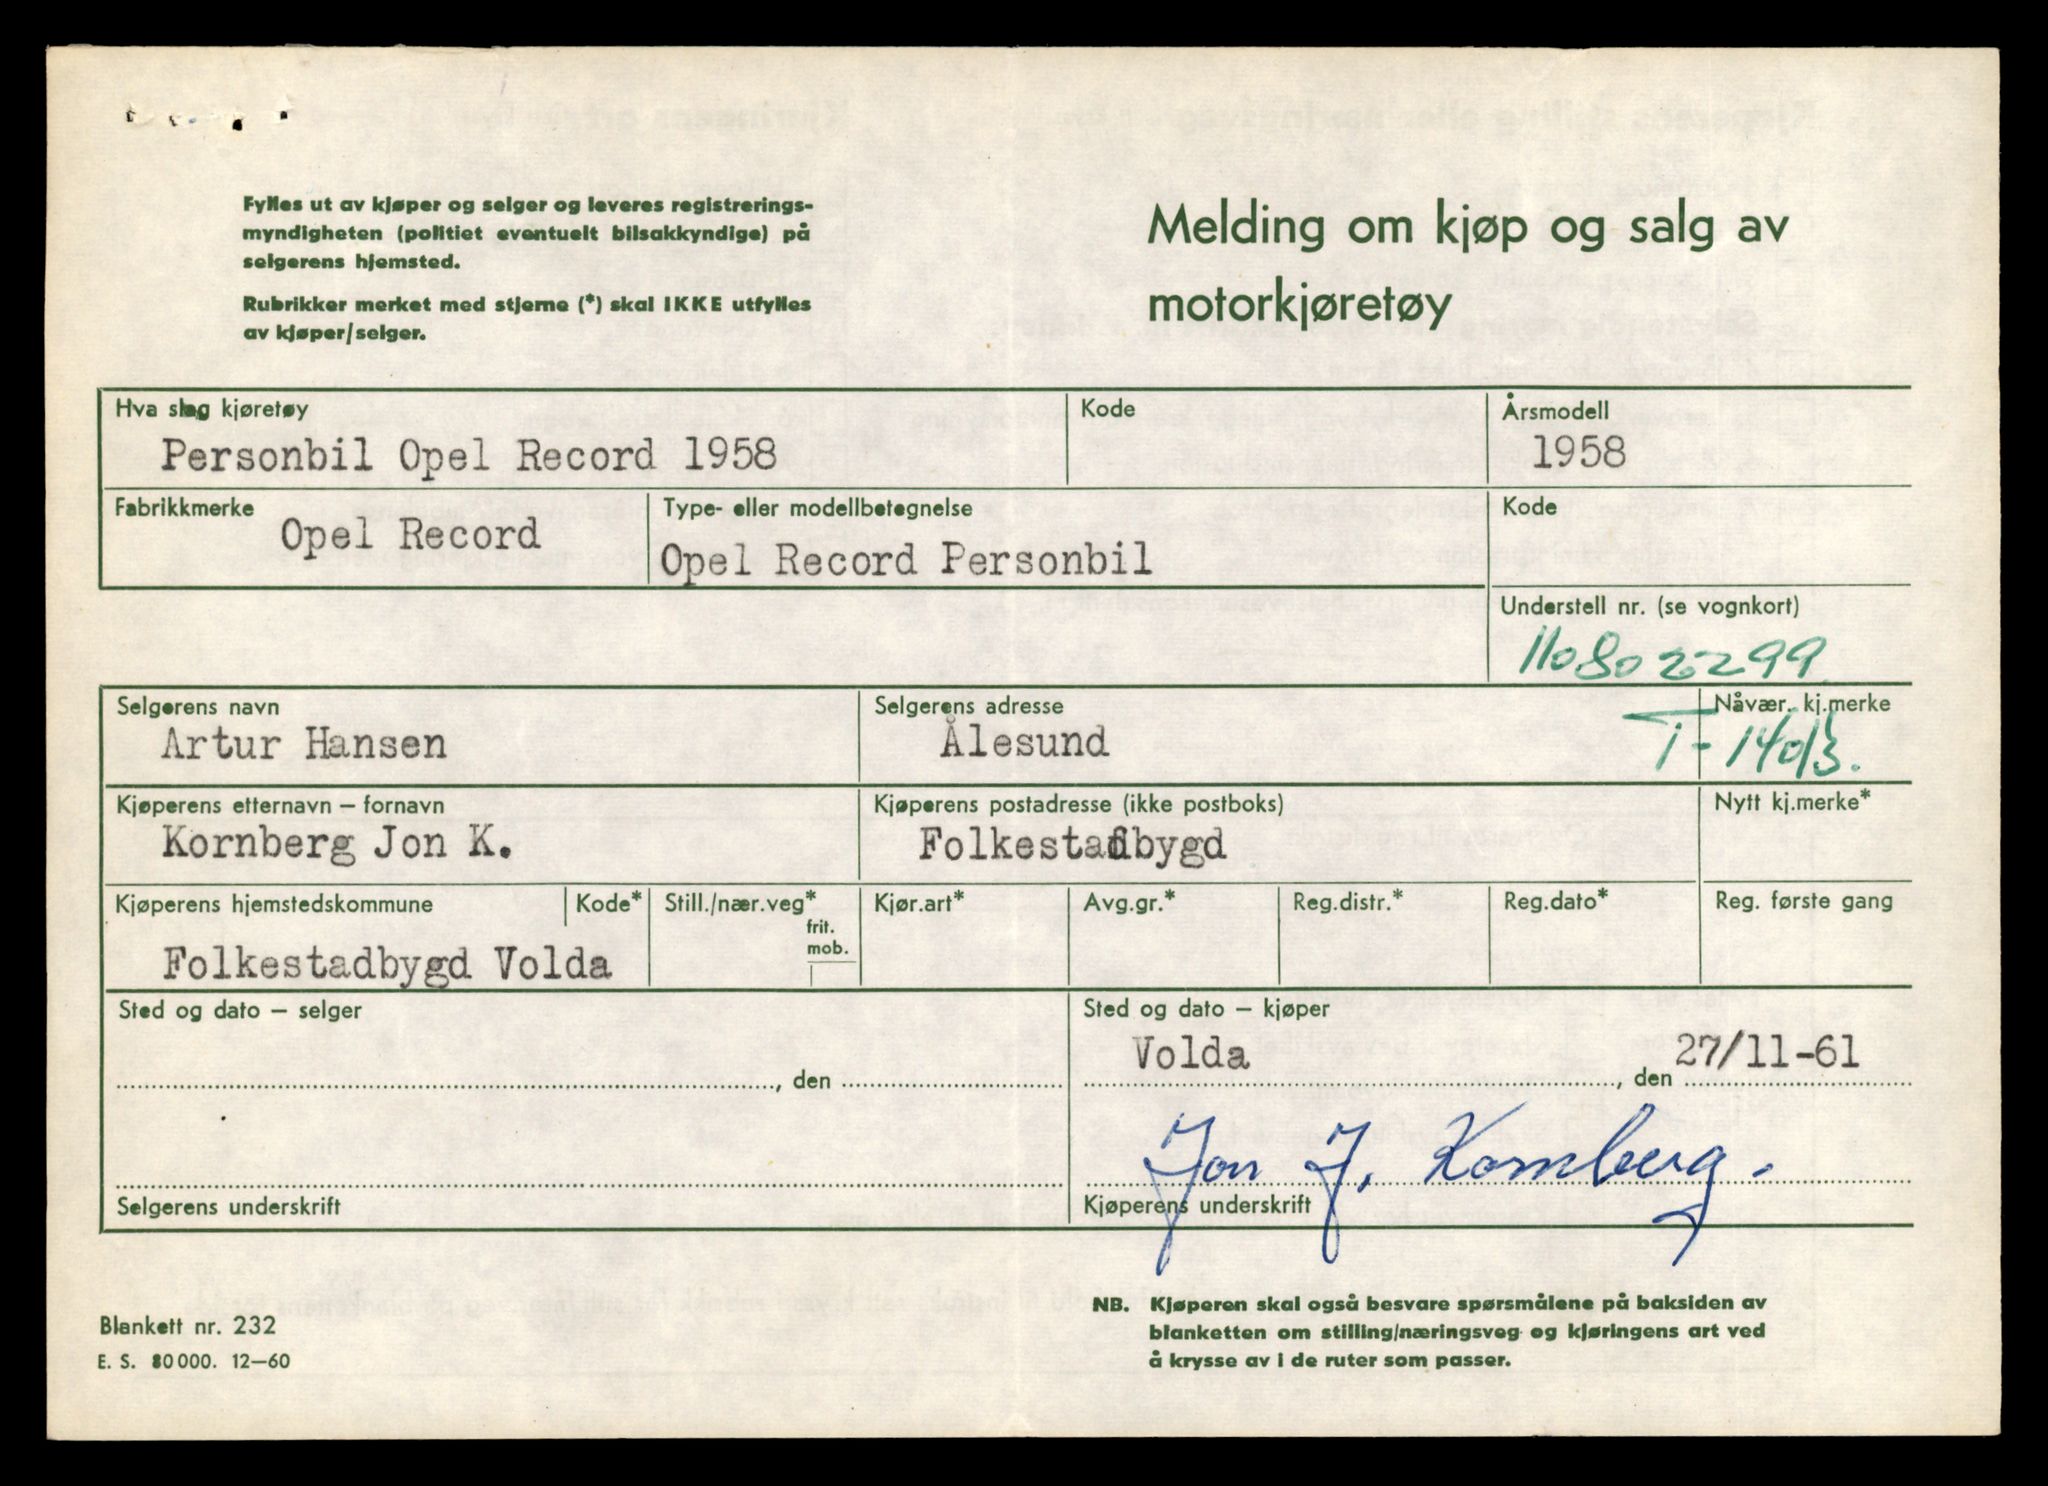 Fylles ut av kjøper og selger og leveres registrerings-
myndigheten (politiet eventuelt bilsakkyndige) på
selgerens hjemsted.
Rubrikker merket med stjerne (*) skal IKKE utfylles
av kjøper/selger.
Melding om kjøp og salg av
motorkjøretøy
Hva slag kjøretøy
Personbil Opel Record 1958
Kode
Årsmodell
1958
Fabrikkmerke
Opel Record
Type- eller modellbetegnelse
Opel Record Personbil
Kode
Understell nr. (se vognkort)
1108022299
Selgerens navn
Artur Hansen
Selgerens adresse
Ålesund
Nåvær. kj.merke
T-14013.
Kjøperens etternavn – fornavn
Kornberg Jon K.
Kjøperens postadresse (ikke postboks)
Folkestadbygd
Nytt kj.merke*
Kjøperens hjemstedskommune
Folkestadbygd Volda
Kode*
Still./nær.veg*
frit.
mob.
Kjør.art*
Avg.gr.*
Reg.distr.*
Reg.dato*
Reg. første gang
Sted og dato – selger
, den
Selgerens underskrift
Sted og dato – kjøper
Volda , den 27/11-61
Jon J. Kornberg.
Kjøperens underskrift
Blankett nr. 232
E. S. 80000. 12–60
NB. Kjøperen skal også besvare spørsmålene på baksiden av
blanketten om stilling/næringsveg og kjøringens art ved
å krysse av i de ruter som passer.